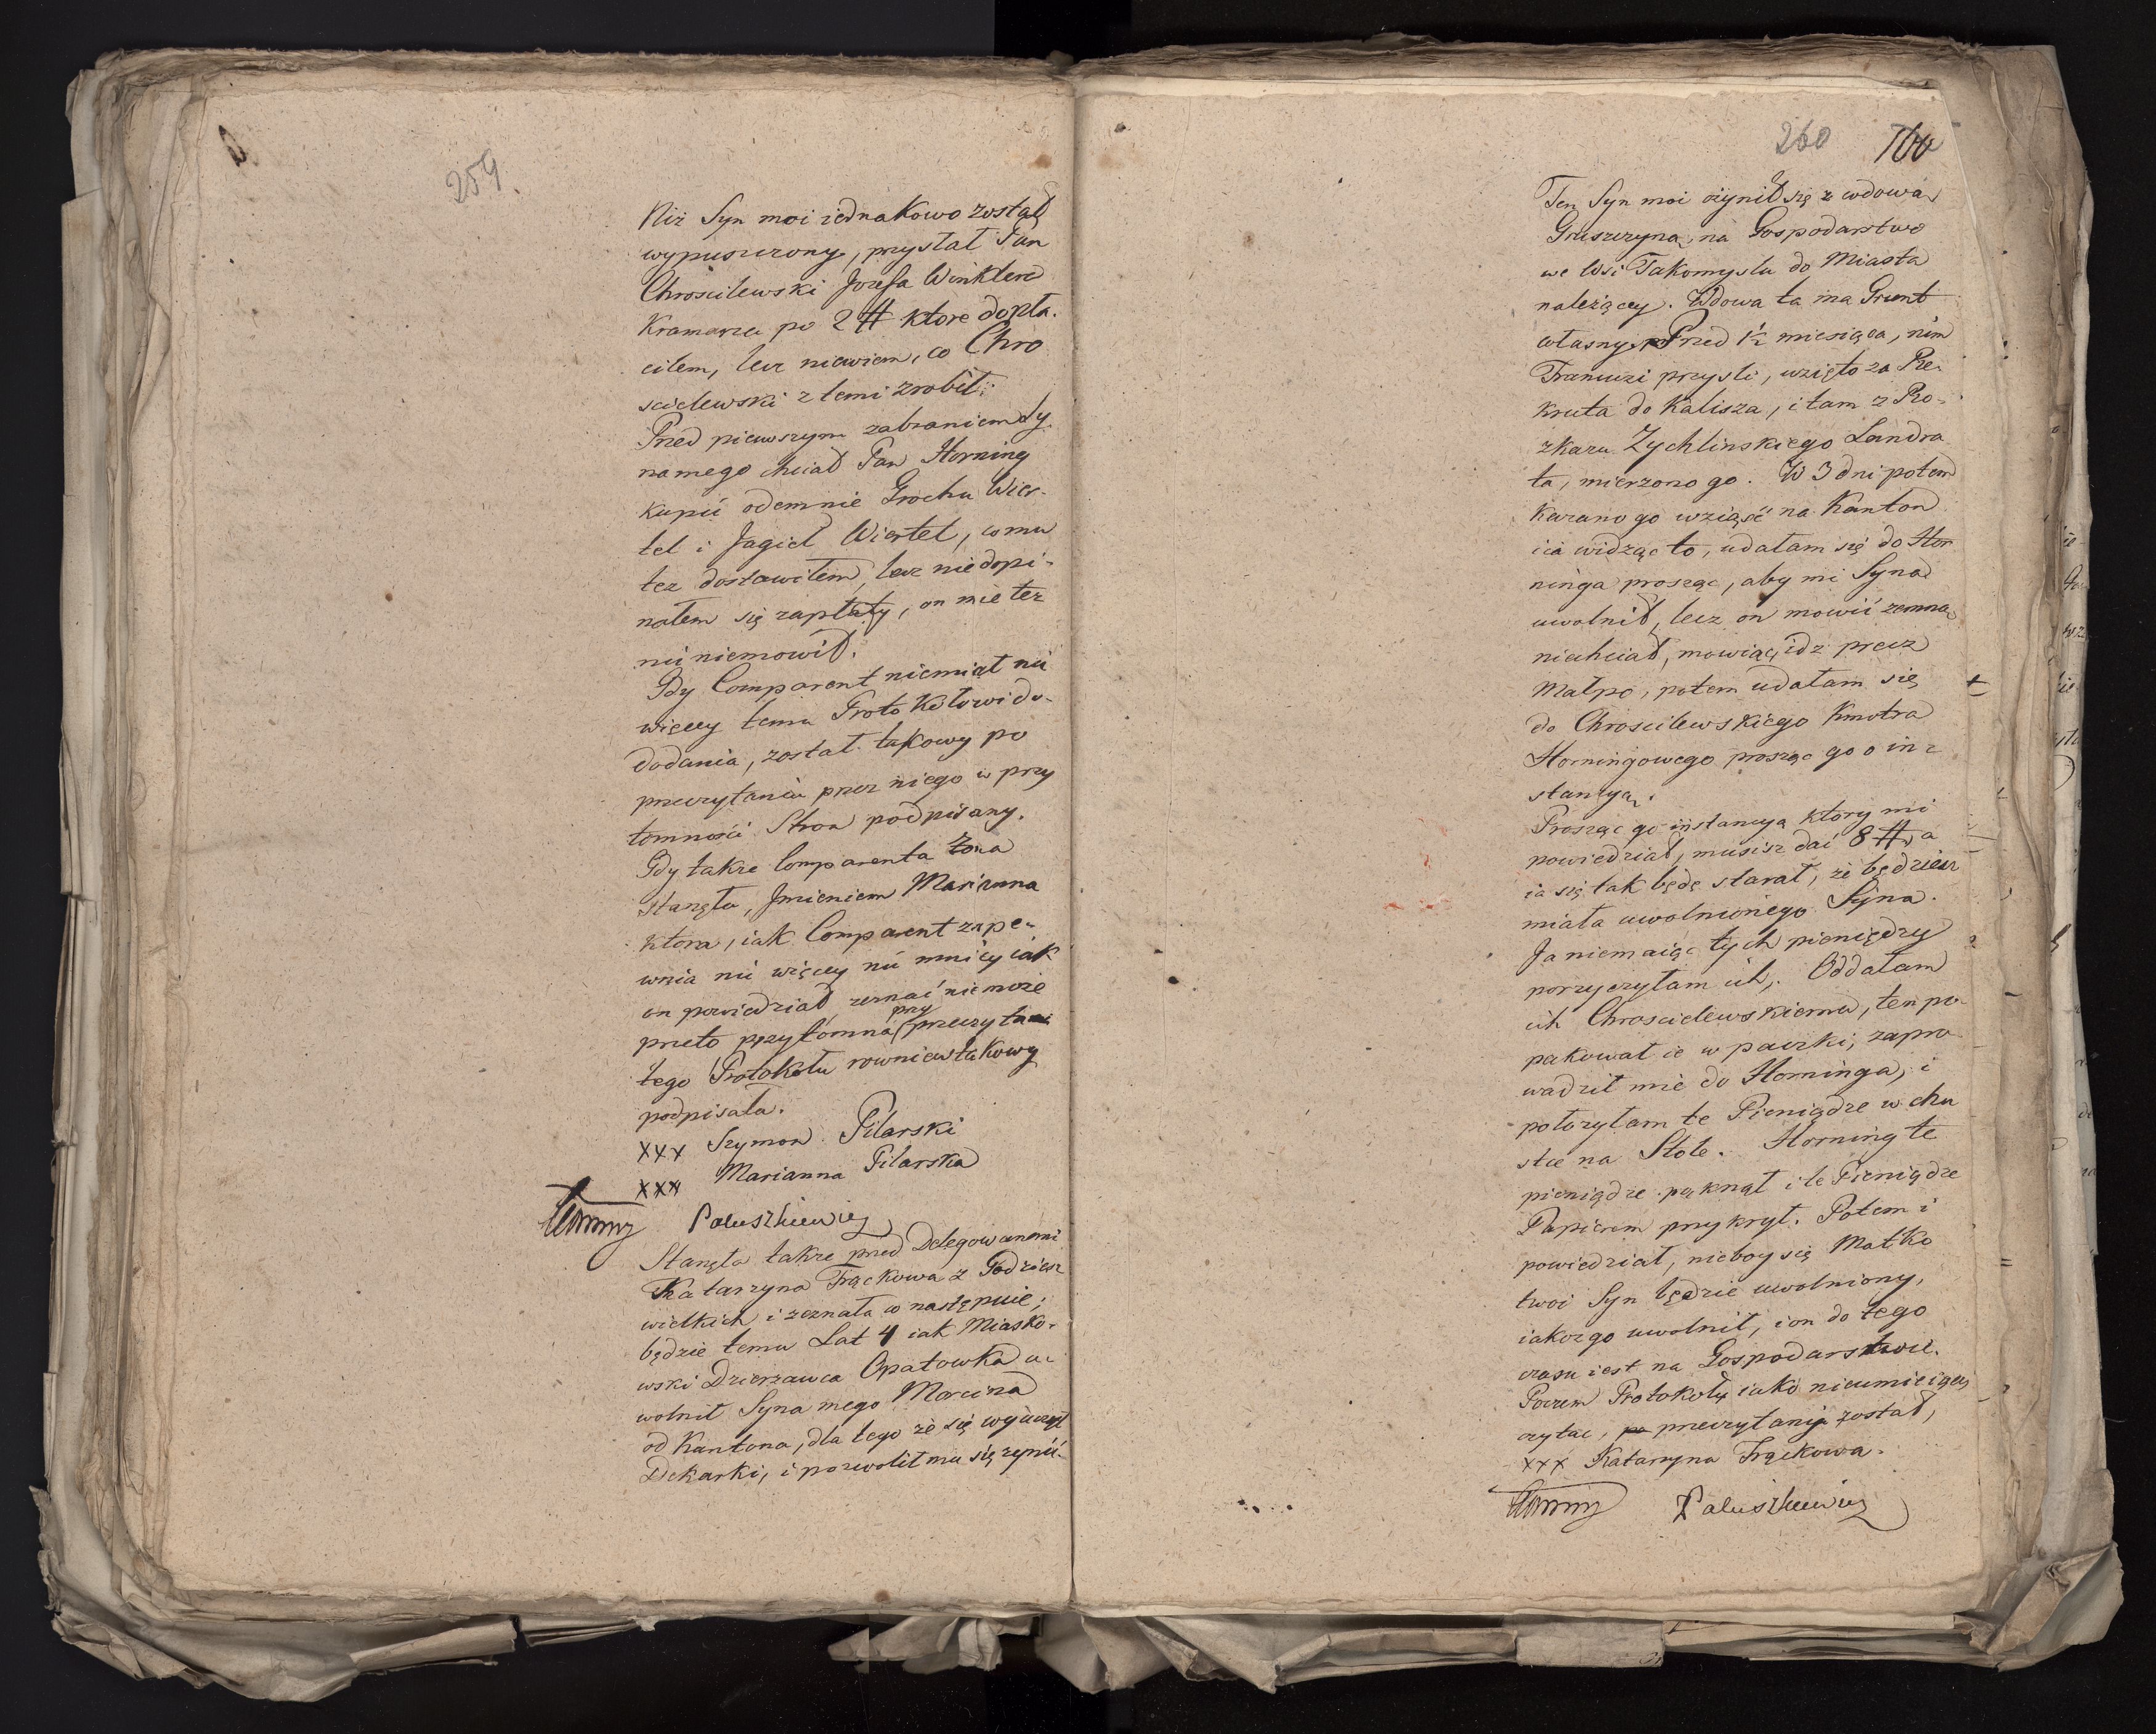 259.
Niz Syn moi iednakowo został
wypuszczony, przystał Pan
Chroscilewski Jozefa Winklera
Kramarza po 2 # ktore dopła-
ciłem, lecz niewiem, co Chro
scielewski z temi zrobił.
Przed pierwszym zabraniem Sy-
na mego chciał Pan Horning
kupić odemnie Grochu Wier-
tel i Jagieł Wiertel, co mu
tez dostawiłem, lecz nie dopi-
nałem się zapłaty, on mie tez
nic niemowił.
Gdy Comparent niemiał nic
więcey temu Protokołowi do-
dodania, został takowy po
przeczytaniu przez niego w przy
tomności Stron podpisany.
Gdy takze Comparenta zona
Stanęła, Jmieniem Marianna
ktora, iak Comparent zape-
wnia nic więcey nic mniey iak
on powiedział zeznać nie moze
przeto przytomna przy przeczytani
tego Protokołu rowniez takowy
podpisała.
xxx Szymon Pilarski
xxx Marianna Pilarska
Paluszkiewicz
Stanęła takze przed Delegowanemi
Katarzyna Frąckowa z Godziesz
wielkich i zeznała w następnie;
będzie temu Lat 4 iak Miasko-
wski Dzierzawca Opatowka u-
wolnił Syna mego Marcina
od Kantona, dla tego ze się wyuczył
Dekarki, i pozwolił mu się zenić.
260 100
Ten Syn moi ozynił się z wdową
Gruszczyną, na Gospodarstwo
we Wsi Takomyslu do Miasta
nalezącey. Wdowa ta ma Grunt
własny. Przed ½ miesiąca, nim
Francuzi przysli, wzięto za Re-
kruta do Kalisza, i tam z Ro-
zkazu Zychlinskiego Landra
ta, mierzono go. W 3 dni potem
kazano go wziąść na Kanton
ia widząc to, udałam się do Hor
ninga prosząc, aby mi Syna
uwolnił, lecz on mowić zemną
niechciał, mowiąc, idz precz
Małpo, potem udałam się
do Chroscilewskiego Kmotra
Horningowego prosząc go o in-
stancyą.
Prosząc go instancyą ktory mi
powiedział, musisz dać 8 #, a
ia się tak będę starał, ze będziesz
miała uwolnionego Syna.
Ja niemaiąc tych pieniędzy
pozyczyłam ich,. Oddałam
ich Chroscielewskiemu, ten po-
pakował ie w paczki, zapro
wadził mie do Horninga, i
połozyłam te Pieniądze w chu
stce na Stole. Horning te
pieniądze pęknął i te Pieniądze
Papierem przykrył. Potem i
powiedział, nieboy się Matko
twoi Syn będzie uwolniony,
iakoz go uwolnił, i on do tego
czasu iest na Gospodarstwie.
Poczem Protokoły iako nieumieiącey
czytac, po przeczytaniu został,
xxx Katarzyna Frąckowa.
Paluszkiewicz